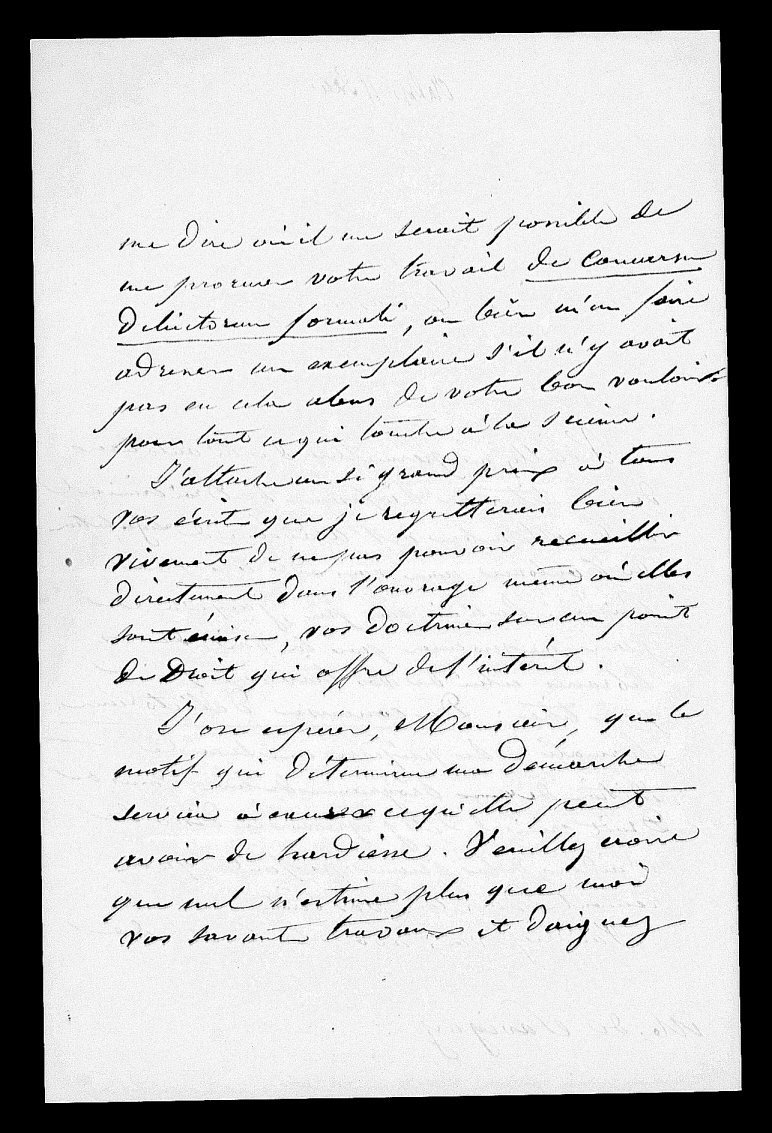 me dire où il me serait possible de
me procurer votre travail de Concursu
Delictorum formali, ou bien m'en faire
adresser un exemplaire s'il n'y avait
pas en cela abus de votre bon vouloir
pour tout ce qui touche à la science.
J'attache un si grand prix à tous
vos écrits que je regretterais bien
vivement de ne pas pouvoir recueillir
directement dans l'ouvrage même où elles
sont émises, vos doctrines sur un point
de Droit qui offre de l'intérêt.
J'ose espérer, Monsieur, que le
motif qui détermine ma démarche
servira à excuser ce qu'elle peut
avoir de hardiesse. Veuillez croire
que nul n'estime plus que moi
vos savants travaux et daignez